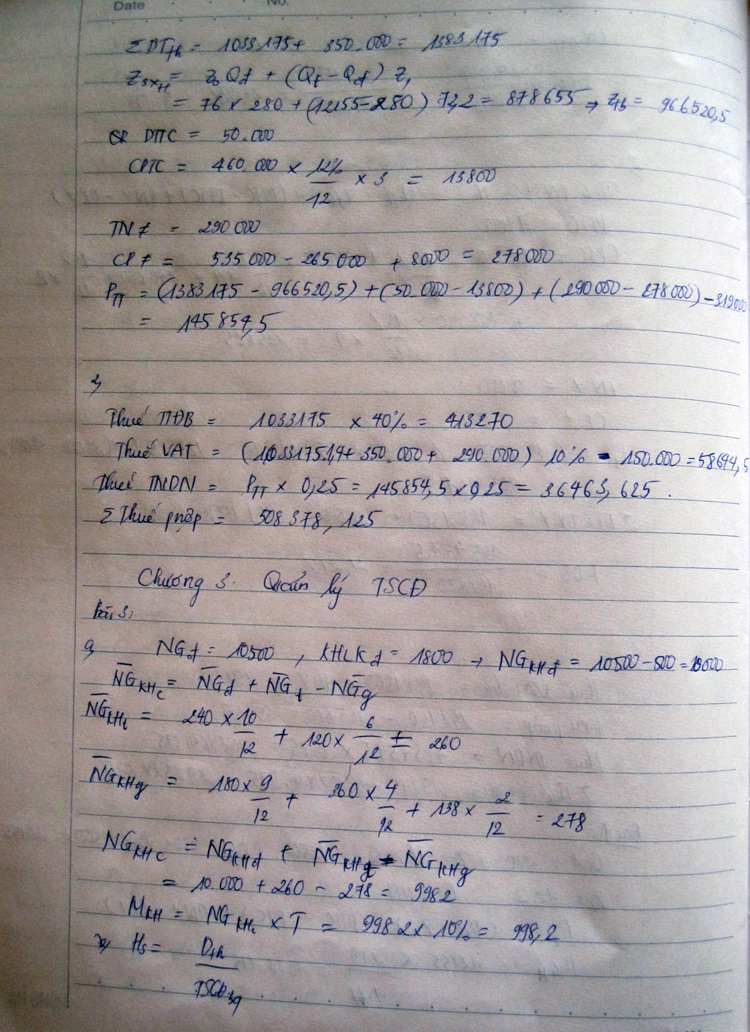 Date No.
ΣDTth = 1033175 + 350.000 = 1383175
ZSXtt = Z0 Qđ + (Qt - Qđ) Z1
= 76 x 280 + (12155 - 280) 72,2 = 878655 → Ztb = 966520,5
DTTC = 50.000
CPTC = 460.000 x 12%/12 x 3 = 13800
TN≠ = 290000
CP≠ = 535000 - 265000 + 8000 = 278000
PTT = (1383175 - 966520,5) + (50.000 - 13800) + (290000 - 278000) - 319000
= 145854,5
2,
Thuế TTĐB = 1033175 x 40% = 413270
Thuế VAT = (1033175.1,4 + 350.000 + 290.000) 10% - 150.000 = 58644,5
Thuế TNDN = PTT x 0,25 = 145854,5 x 0,25 = 36463,625.
Σ Thuế pnộp = 508378,125
Chương 3. Quản lý TSCĐ
Bài 3:
a, NGđ = 10500, KHLKđ = 1800 → NGKHđ = 10500 - 500 = 10000
N̅G̅KHc = N̅G̅đ + N̅G̅t - N̅G̅g
N̅G̅KHt = 240 x 10/12 + 120 x 6/12 = 260
N̅G̅KHg = 180 x 9/12 + 360 x 4/12 + 138 x 2/12 = 278
NGKHc = NGKHđ + N̅G̅KHt - N̅G̅KHg
= 10.000 + 260 - 278 = 9982
MKH = NGKHc x T = 9982 x 10% = 998,2
b, Hs = Dth/TSCĐbq